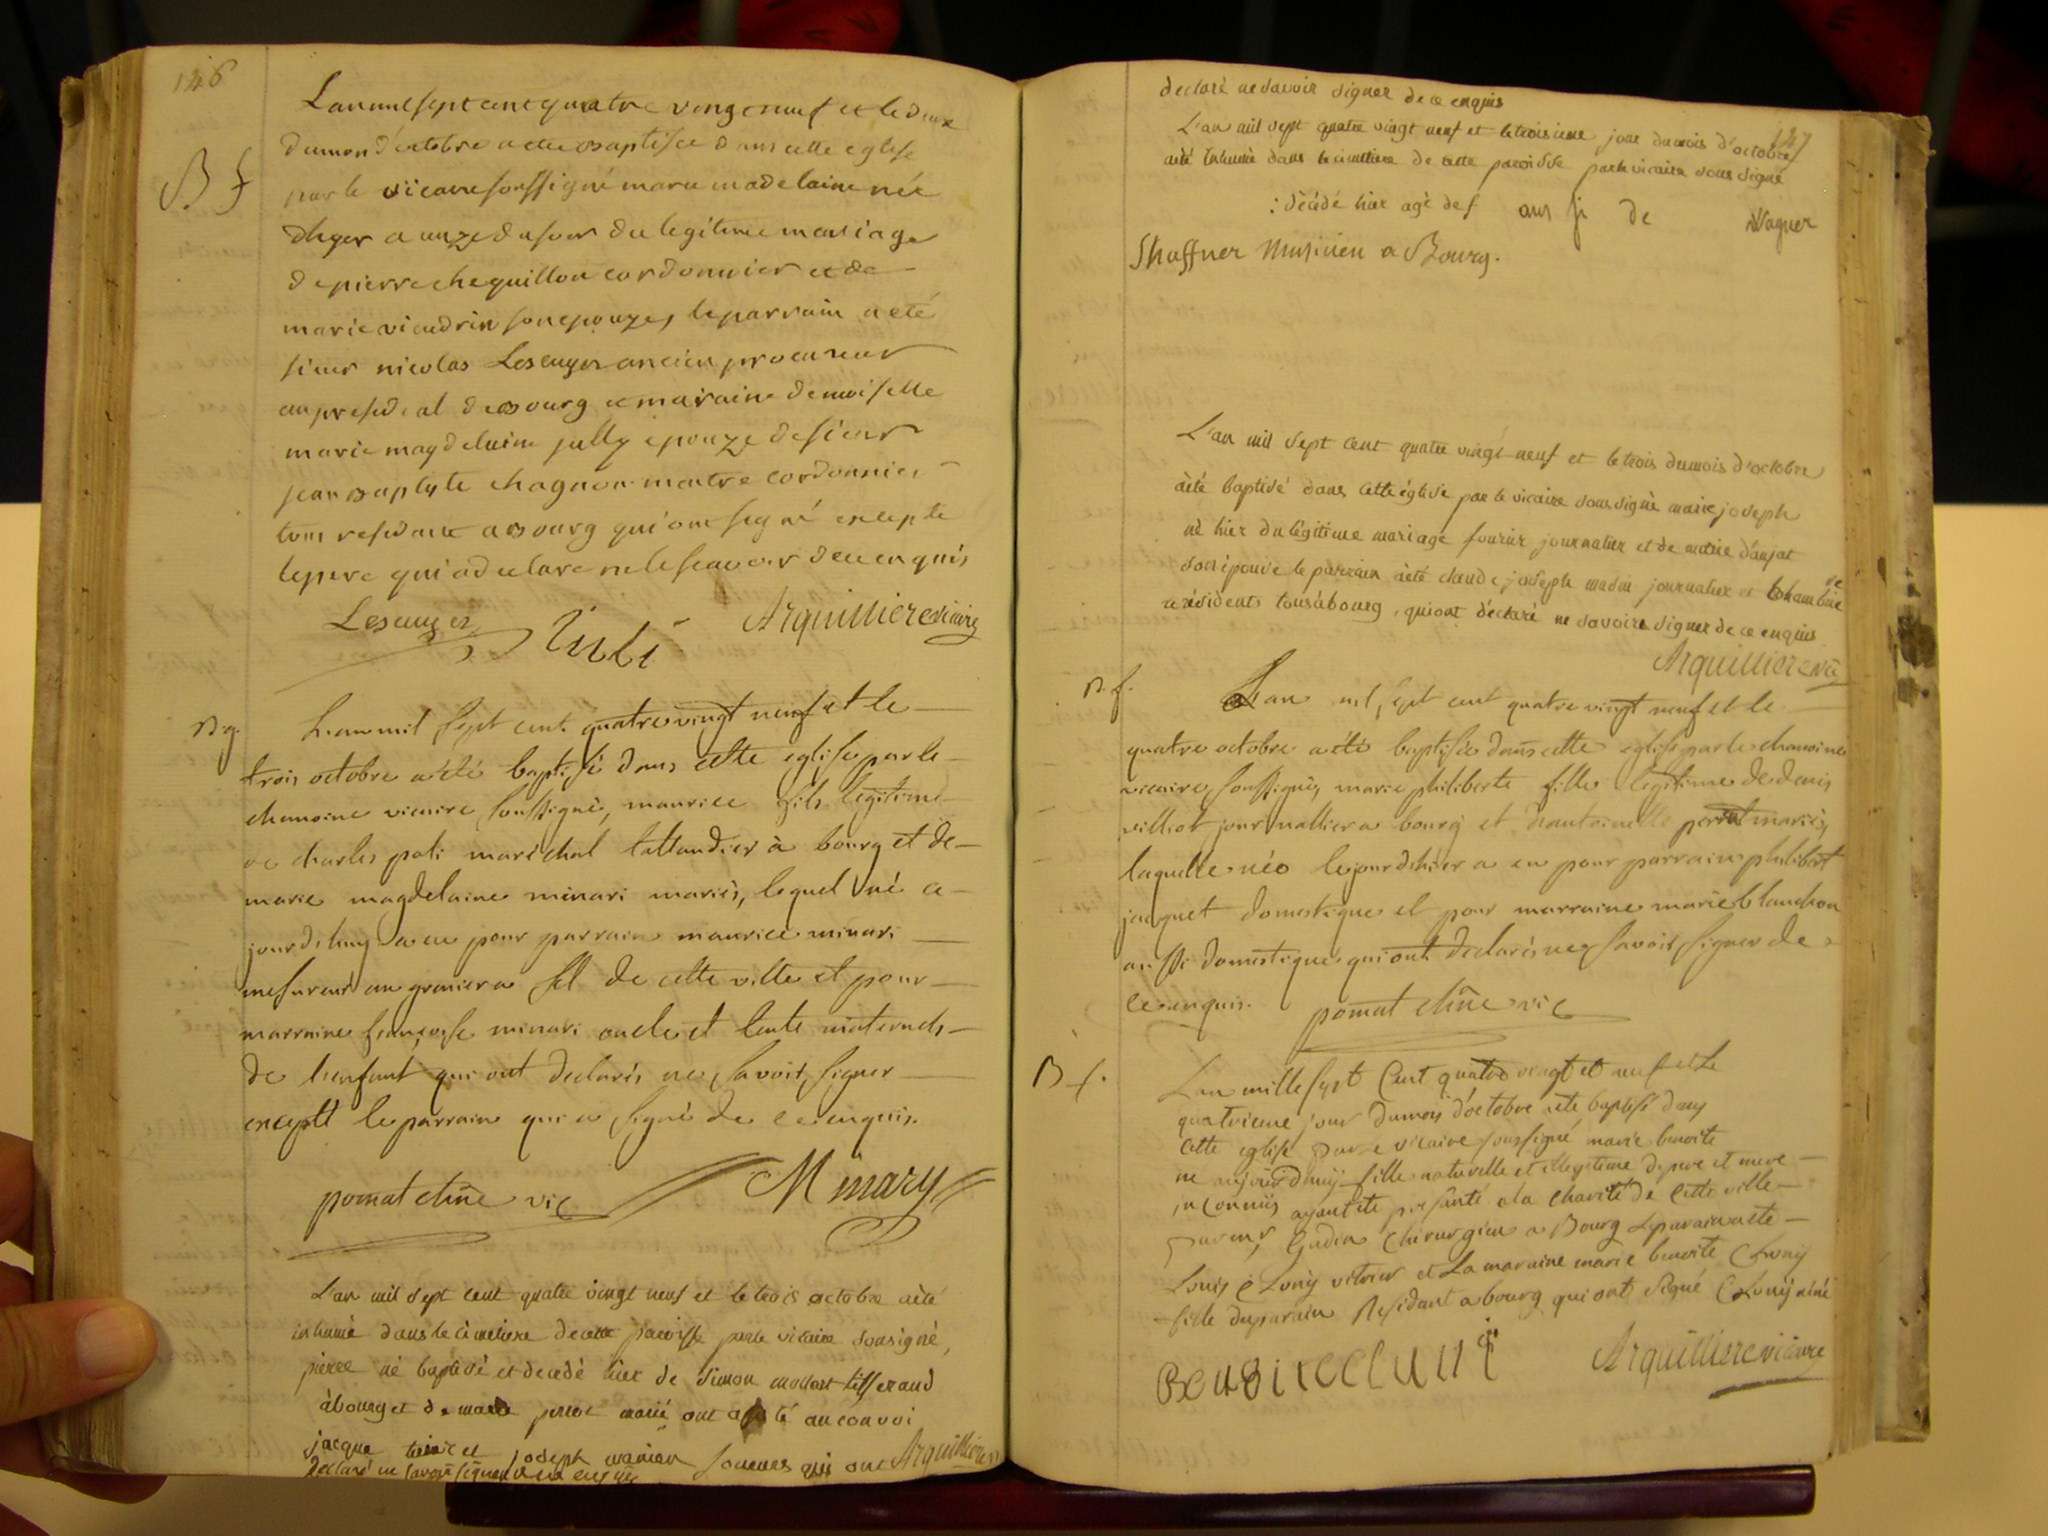 146
L'an mil sept cent quatre vingt neuf et le deux
du mon d'octobre a eté baptisée dans cette eglise
B f
par le vicaire soussigné marie madelaine née
d'hyer a unze du soir du legitime mariage
de pierre chequillon cordonnier et de
marie viendrin son epouze, le parrain a eté
sieur nicolas Lescuyer ancien procureur
au presidial de bourg et maraine demoiselle
marie magdelaine jully epouze de sieur
jean baptyte chagnon maitre cordonnier
tous residant a bourg qui ont signé excepte
le pere qui a declare ne le scavoir de ce enquis
Lescuyer Juli Arquilliere vicaire
B g.
L'an mil sept cent quatre vingt neuf et le
trois octobre a été baptisé dans cette eglise par le
chanoine vicaire soussigné, maurice fils legitime
de charles pati maréchal tallandier à bourg et de
marie magdelaine minari mariés, lequel né ce
jourd'huy a eu pour parrain maurice minari
mesureur au grenier a sel de cette ville et pour
marraine françoise minari oncle et tente maternels
de l'enfant qui ont declarés ne savoir signer
exceptt le parrain qui a signé de ce enquis.
pomat chne vic Minary
L'an mil sept cent quatre vingt neuf et le trois octobre aété
inhumé dans le cimetiere de cette paroisse par le vicaire sousigné,
pierre né baptisé et decedé hier de Simon tisserand
à bourg et de marie perrot marié ont assisté au convoi
jacque et joseph soneurs qui ont Arquilliere v
declaré ne savoir signer de ce enquis
declaré ne savoir signer de ce enquis
147
L'an mil sept quatre vingt neuf et le troisieme jour du mois d'octobre
aété inhumé dans le cimetiere de cette paroisse par le vicaire sous signé
: décédé hier agé de ans fi de Wagner
Shaffner Musicien a Bourg.
L'an mil sept cent quatre vingt neuf et le trois du mois d'octobre
aété baptisé dans cette église par le vicaire sous signé marie joseph
né hier du légitime mariage journalier et de marie danjat
son épouse le parrain aété claude joseph journalier et
résidents tous à bourg, qui ont déclaré ne savoire signer de ce enquis
Arquilliere vic
B. f.
L'an mil sept cent quatre vingt neuf et le
quatre octobre a été baptisée dans cette eglise par le chanoine
vicaire soussigné, marie philiberte fille legitime de denis
villiot journallier a bourg et d'antoinette perrat mariés,
laquelle née le jour d'hier a eu pour parrain philibert
jacquet domestique et pour marraine marie blanchon
aussi domestique qui ont declarés ne savoir signer de
ce enquis. pomat chne vic
B f.
L'an mille sept Cent quatre vingt et neuf et le
quatrieme jour du mois d'octobre aété baptisé dans
cette eglise par le vicaire soussigné marie benoite
ne aujourd'huy fille naturelle et illegitime de pere et mere
inconnus ayant été presanté a la charité de Cette ville
par mr, Gudin Chirurgien a Bourg le parain a eté
Louis Cluny vitrier et La maraine marie benoite Cluny
fille du parain Residant a bourg qui ont signé Cluny ainé
Benoite cluni Arquilliere vicaire